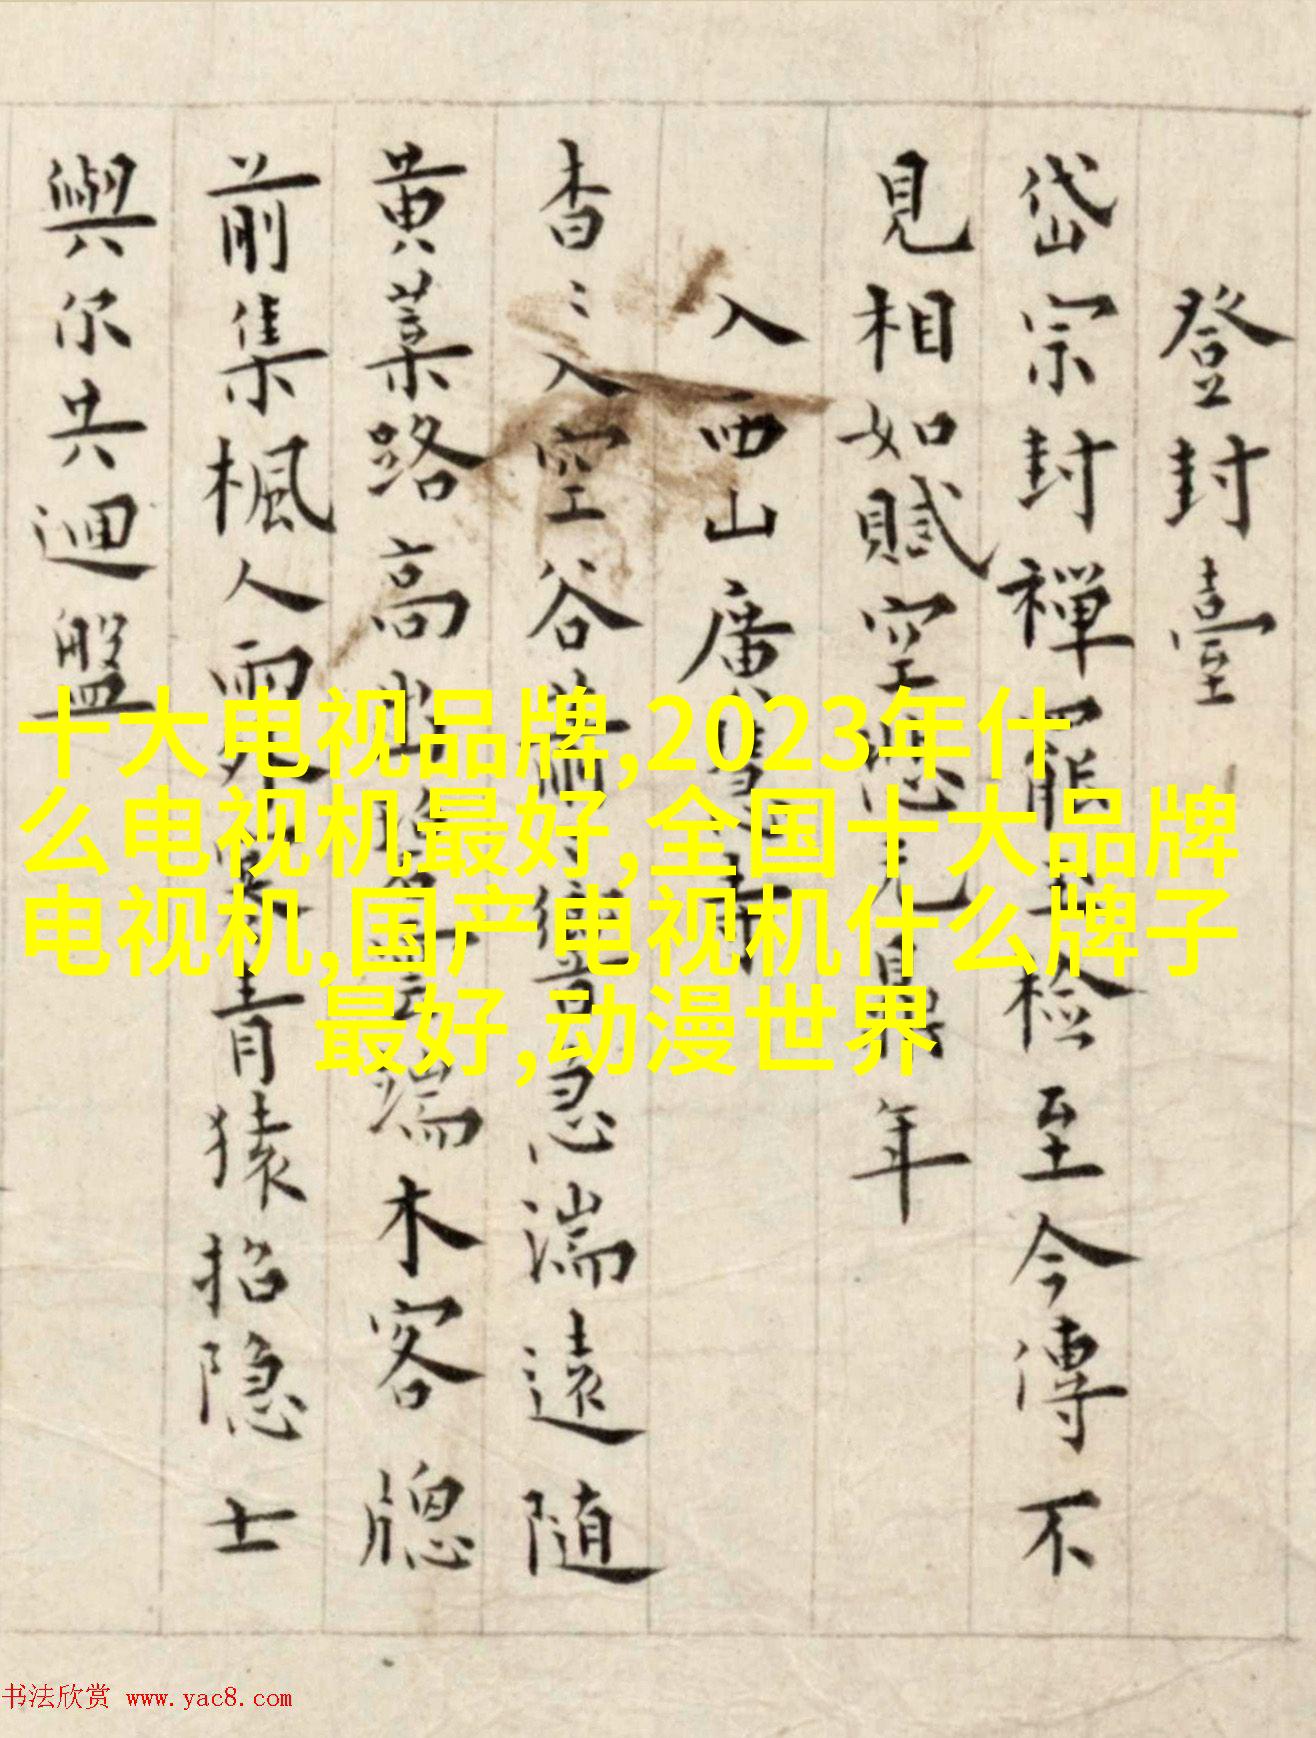 登封臺
岱宗封禪 至檢至今傳不
見相如賦空 年
入西山廣
杳〻入空谷 響急湍遠随
黄葉路高 端木客牕
前集楓人 青猿招隐士
與尔共迴盤
十大电视品牌,2023年什
么电视机最好,全国十大品牌
电视机,国产电视机什么牌子
最好,动漫世界
书法欣赏 www.yac8.com